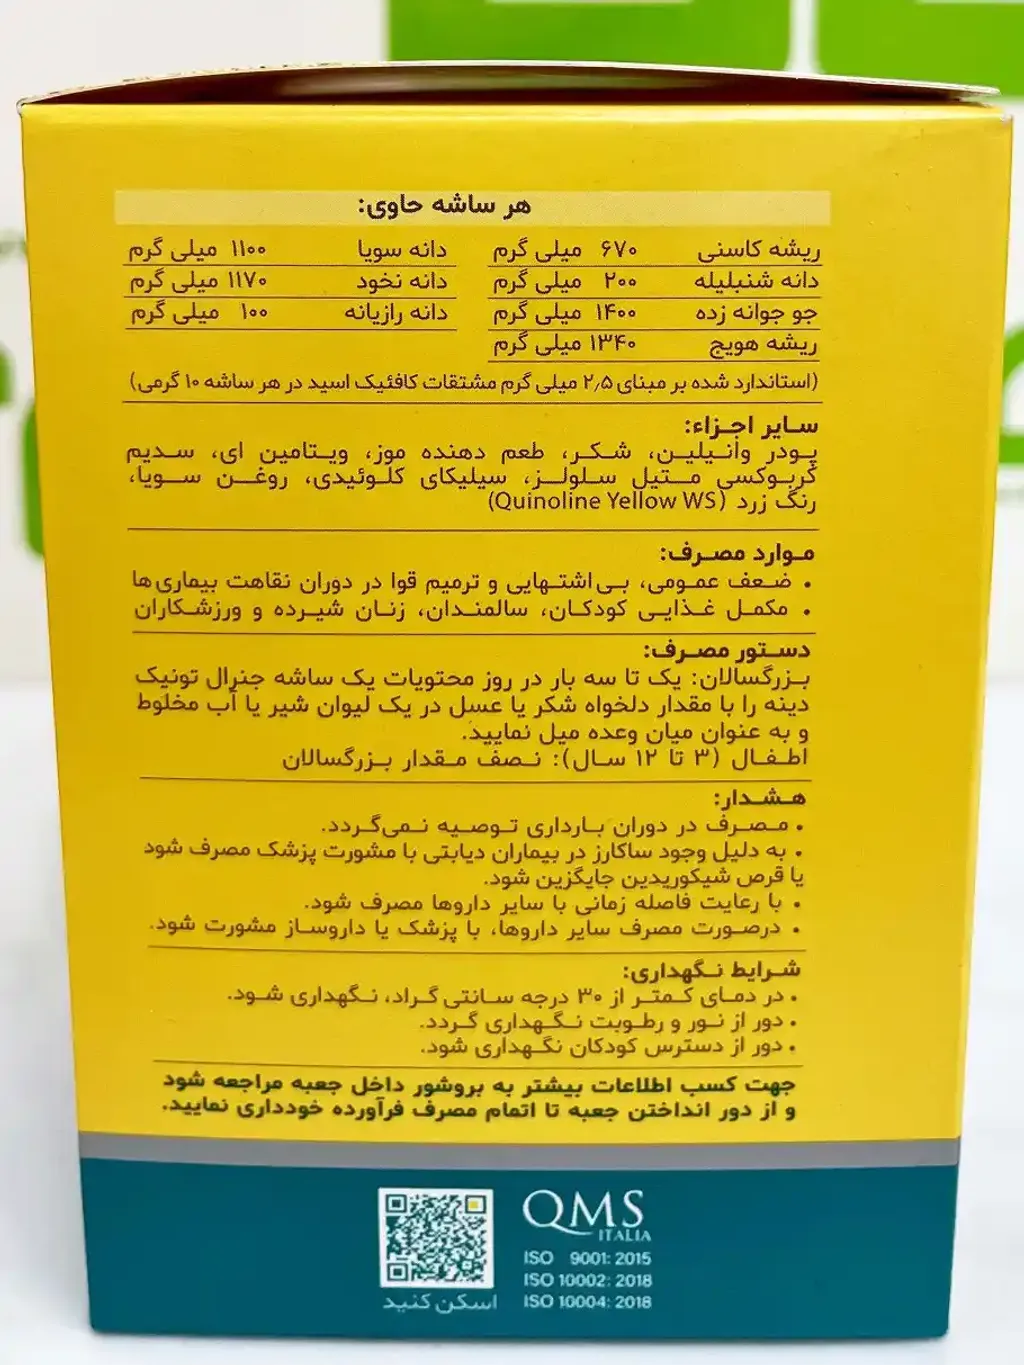 هر ساشه حاوی:
ریشه کاسنی ۶۷۰ میلی گرم
دانه شنبلیله ۲۰۰ میلی گرم
جو جوانه زده ۱۴۰۰ میلی گرم
ریشه هویج ۱۳۴۰ میلی گرم
دانه سویا ۱۱۰۰ میلی گرم
دانه نخود ۱۱۷۰ میلی گرم
دانه رازیانه ۱۰۰ میلی گرم
(استاندارد شده بر مبنای ۲٫۵ میلی گرم مشتقات کافئیک اسید در هر ساشه ۱۰ گرمی)
سایر اجزاء:
پودر وانیلین، شکر، طعم دهنده موز، ویتامین ای، سدیم
کربوکسی متیل سلولز، سیلیکای کلوئیدی، روغن سویا،
رنگ زرد (Quinoline Yellow WS)
موارد مصرف:
• ضعف عمومی، بی‌اشتهایی و ترمیم قوا در دوران نقاهت بیماری‌ها
• مکمل غذایی کودکان، سالمندان، زنان شیرده و ورزشکاران
دستور مصرف:
بزرگسالان: یک تا سه بار در روز محتویات یک ساشه جنرال تونیک
دینه را با مقدار دلخواه شکر یا عسل در یک لیوان شیر یا آب مخلوط
و به عنوان میان وعده میل نمایید.
اطفال (۳ تا ۱۲ سال): نصف مقدار بزرگسالان
هشدار:
• مصرف در دوران بارداری توصیه نمی‌گردد.
• به دلیل وجود ساکارز در بیماران دیابتی با مشورت پزشک مصرف شود
یا قرص شیکوریدین جایگزین شود.
• با رعایت فاصله زمانی با سایر داروها مصرف شود.
• درصورت مصرف سایر داروها، با پزشک یا داروساز مشورت شود.
شرایط نگهداری:
• در دمای کمتر از ۳۰ درجه سانتی گراد، نگهداری شود.
• دور از نور و رطوبت نگهداری گردد.
• دور از دسترس کودکان نگهداری شود.
جهت کسب اطلاعات بیشتر به بروشور داخل جعبه مراجعه شود
و از دور انداختن جعبه تا اتمام مصرف فرآورده خودداری نمایید.
QMS
ITALIA
ISO 9001: 2015
ISO 10002: 2018
ISO 10004: 2018
اسکن کنید